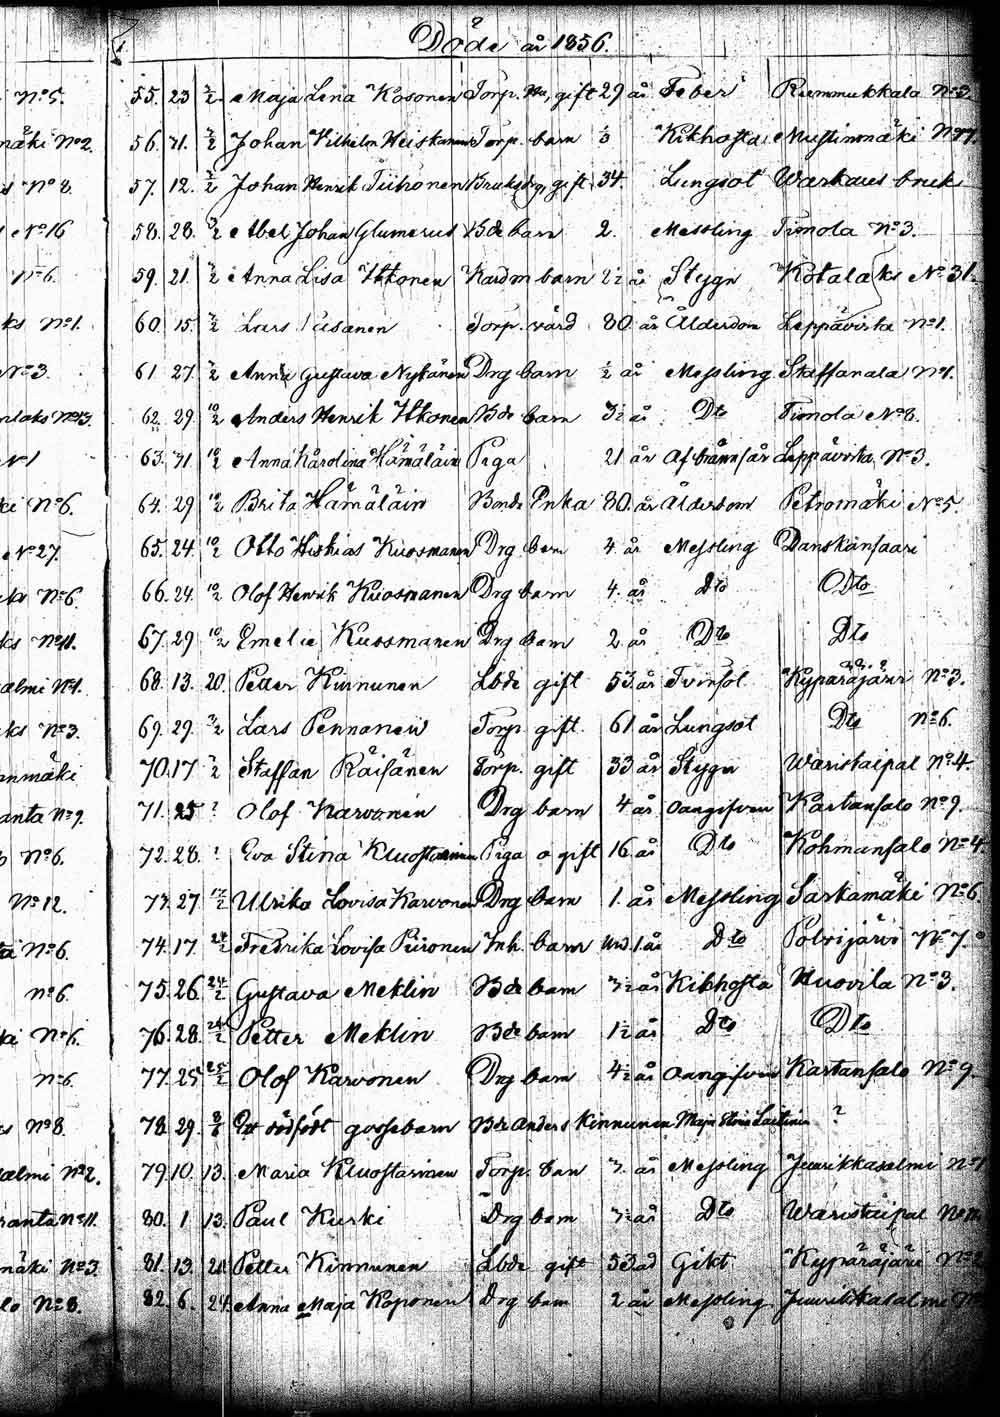 Döde år 1856.
N:o 5. 55. 23 2/2 Maja Lena Kosonen Torp. Hu, gift 29 år Feber N:o 2
mäki N:o 2. 56. 31. 2/2 Johan Wilhelm Heiskanen Torp. barn 1/2 Kikhosta Mustinmäki N:o 17.
N:o 8. 57. 12. 2/2 Johan Henrik Tiihonen Bruksdrg, gift 34. Lungsot Warkaus bruk
N:o 16 58. 28. 2/2 Abel Johan Glumerus Bde barn 2. Messling Timola N:o 3.
N:o 6. 59. 21. 2/2 Anna Lisa Ikkonen barn 2 1/2 år Stygn Kotalaks N:o 31.
ks N:o 1. 60. 15. 2/2 Lars Torp. värd 80. år Ålderdom Leppävirta N:o 1.
N:o 3. 61. 27. 2/2 Anna Gustava Nykänen Drg barn 1/2 år Messling Staffanala N:o 1.
laks N:o 13. 62. 29. 10/2 Anders Henrik Ikkonen Bde barn 3 1/2 år Dto Timola N:o 8.
N:o 1 63. 31. 10/2 Anna Karolina Hämäläin Piga 21 år Af brännsår Leppävirta N:o 3.
N:o 6. 64. 29 10/2 Brita Hämäläin Bonde Enka 80. år Ålderdom Petromäki N:o 5
N:o 27. 65. 24. 10/2 Otto Kuosmanen Drg barn 4. år Messling Danskansaari
N:o 6. 66. 24. 10/2 Olof Henrik Kuosmanen Drg barn 4. år Dto Dto
ks N:o 11. 67. 29. 10/2 Emelie Kuosmanen Drg barn 2 år Dto Dto
salmi N:o 1. 68. 13. 20. Petter Kinnunen Lbde gift 53. år Tvinsot Kypäräjärvi N:o 3.
ks N:o 3. 69. 29. 2/2 Lars Pennanen Torp. gift. 61. år Lungsot Dto N:o 6.
mäki 70. 17 2/2 Staffan Räisänen Torp. gift 33 år Stygn Waristaipal N:o 4.
ranta N:o 9. 71. 25 ? Olof Karvonen Drg barn 4 år Oangifven Kartansalo N:o 9.
N:o 6. 72. 28. ? Eva Stina Kluostarinen Piga o gift 16 år Dto Kohmansalo N:o 4.
N:o 12. 73. 27 17/2 Ulrika Lovisa Karvonen Drg barn 1. år Messling Sarkamäki N:o 6.
N:o 6. 74. 17 24/2 Fredrika Lovisa Piironen Inh. barn und. 1 år Dto Polvijärvi N:o 7.
N:o 6. 75. 26. 24/2 Gustava Meklin Bde barn 3 1/2 år Kikhosta Huovila N:o 3.
N:o 6. 76. 28. 24/2 Petter Meklin Bde barn 1 1/2 år Dto Dto
N:o 6. 77. 25 25/2 Olof Karvonen Drg barn 4 1/2 år Oangifven Kartansalo N:o 9
N:o 8. 78. 29. 8/8 Ett dödfödt gossebarn Bde Anders Kinnunen Maja Stina Laitinen ?
salmi N:o 2. 79. 10. 13. Maria Kluostarinen Torp. barn 3. år Messling Juurikkasalmi N:o 1
ranta N:o 11. 80. 1 13. Paul Kurki Drg barn 3 1/2 år Dto Waristaipal
mäki N:o 3. 81. 13. 20. Petter Kinnunen Lbde gift 53 år Gikt Kypäräjärvi N:o 2
lo N:o 8. 82. 6. 24. Anna Maja Koponen Drg barn 2 år Messling Juurikkasalmi